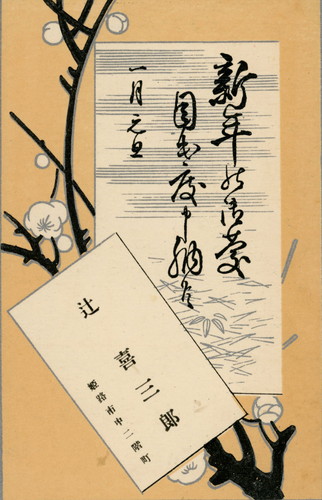 新年の御慶
目出度申納候
一月元旦
辻喜三郎
姫路市中二階町